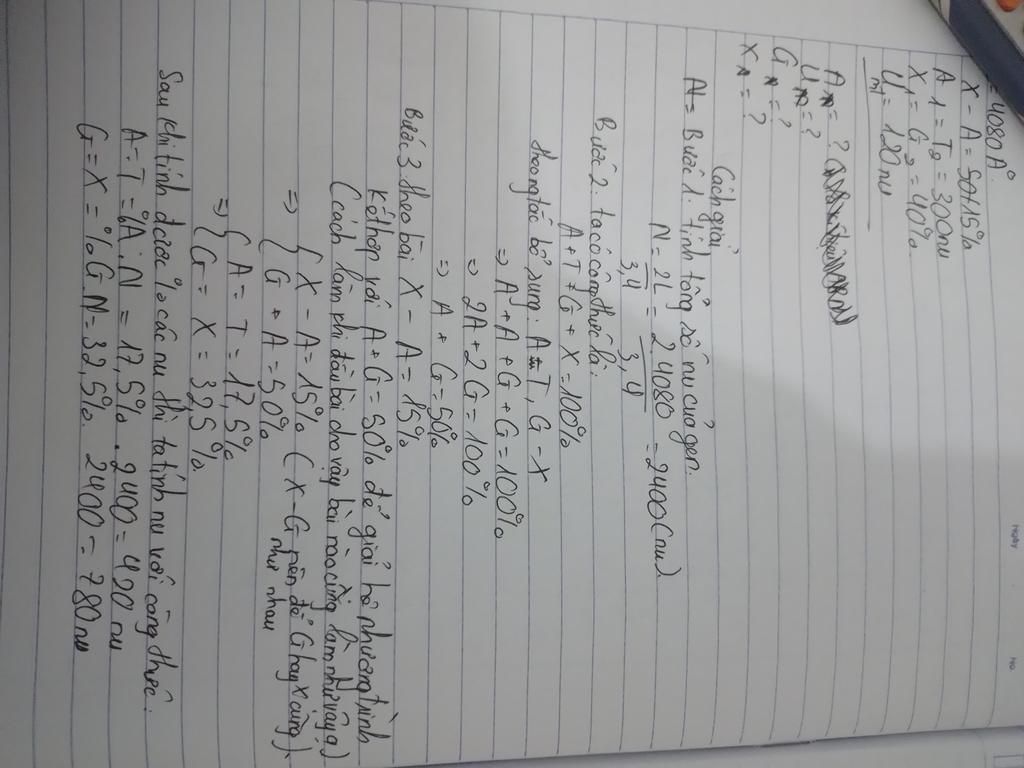 = 4080A°
X - A = 15%
A1 = T2 = 300nu
X1 = G2 = 40%
Um = 120nu
Am = ?
Um = ?
Gm = ?
Xm = ?
Cách giải
Bước 1. tính tổng số nu của gen.
N = 2L/3,4 = 2.4080/3,4 = 2400(nu)
Bước 2. ta có công thức là.
A + T + G + X = 100%
theo ng tắc bổ sung. A = T, G - X
⇒ A + A + G + G = 100%
⇒ 2A + 2G = 100%
⇒ A + G = 50%
Bước 3. theo bài X - A = 15%
Kết hợp với A + G = 50% để giải hệ phương trình
(cách làm khi đầu bài cho vậy bài nào cũng làm như vậy ạ)
⇒ { X - A = 15% (X - G nên để G hay X cũng
{ G + A = 50% như nhau)
⇒ { A = T = 17,5%
{ G = X = 32,5%.
Sau khi tính được % các nu thì ta tính nu với công thức.
A = T = %A.N = 17,5% . 2400 = 420 nu
G = X = %G.N = 32,5%. 2400 = 780 nu